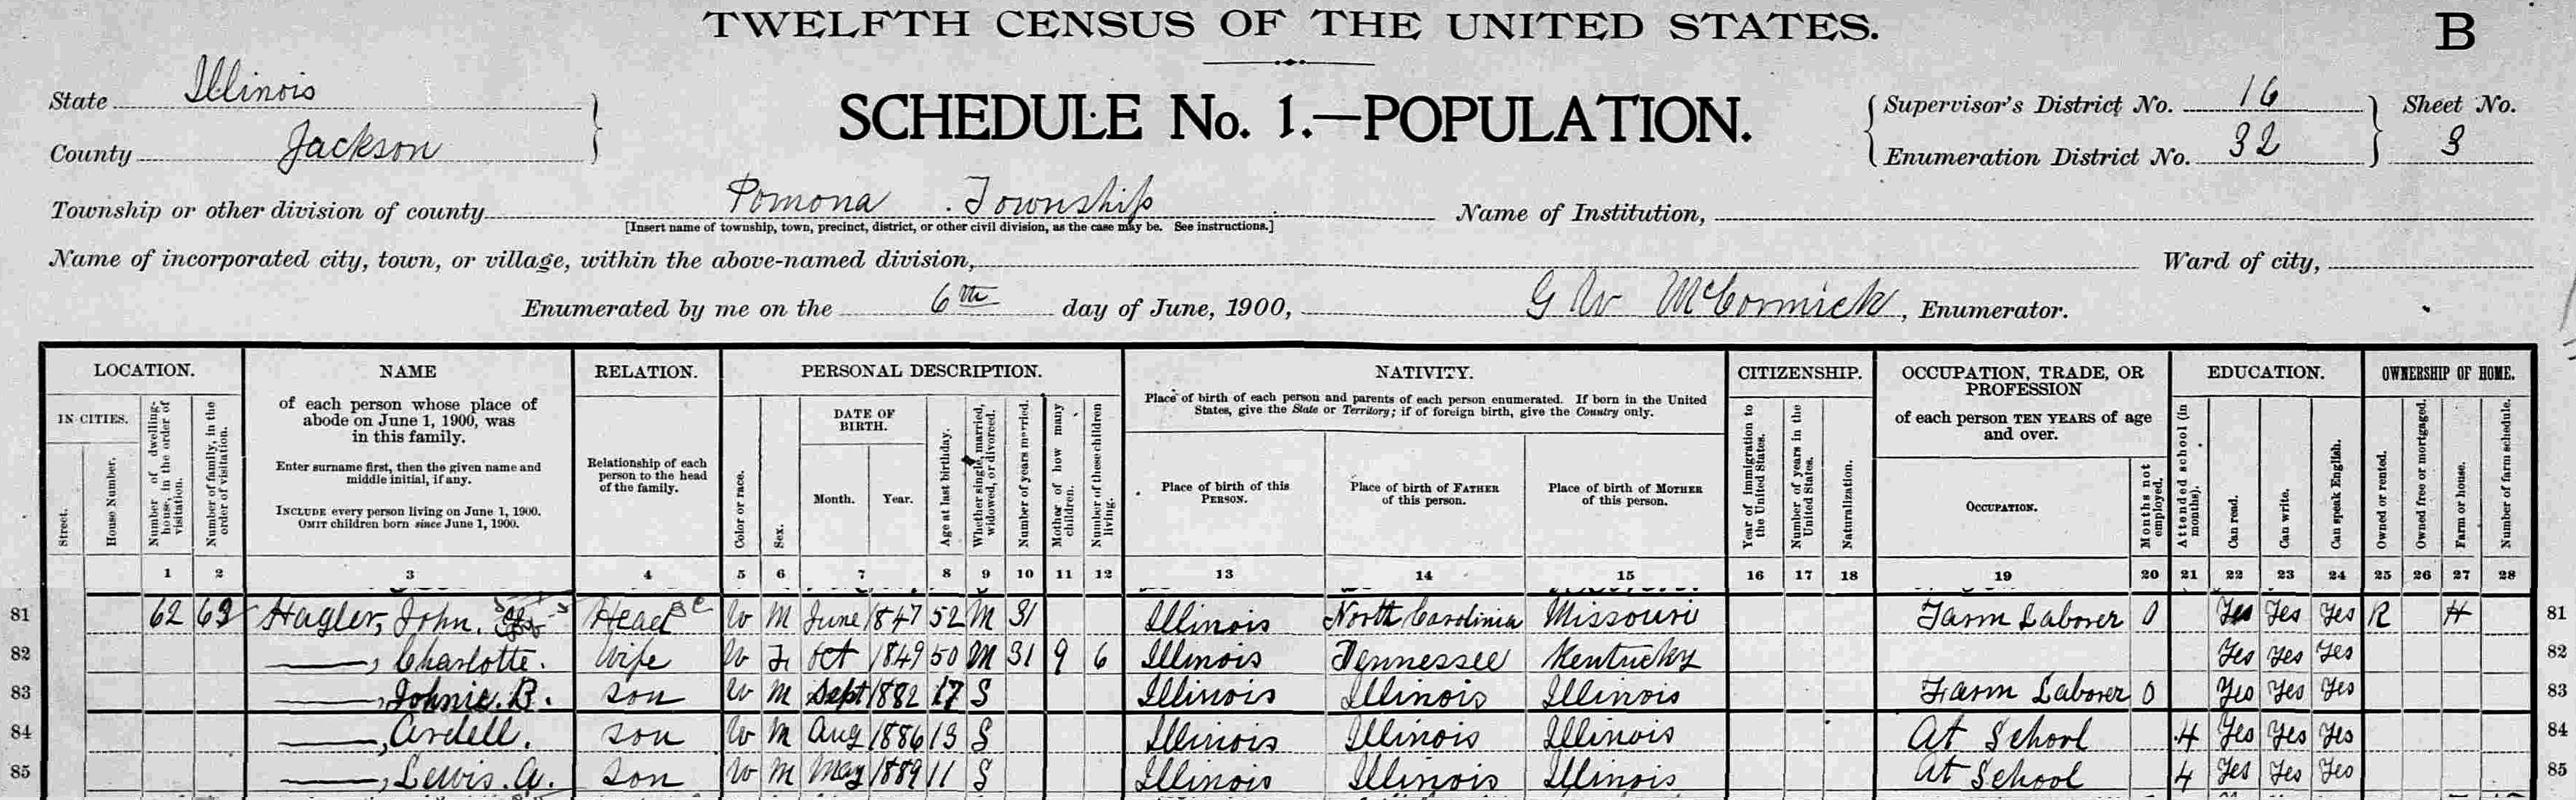 TWELFTH CENSUS OF THE UNITED STATES.
B
SCHEDULE No. 1.—POPULATION.
State Illinois
County Jackson
Supervisor's District No. 16
Enumeration District No. 32
Sheet No.
3
Township or other division of county Pomona Township
[Insert name of township, town, precinct, district, or other civil division, as the case may be. See instructions.]
Name of Institution,
Name of incorporated city, town, or village, within the above-named division,
Ward of city,
Enumerated by me on the 6th day of June, 1900, G W McCormick, Enumerator.
LOCATION.
IN CITIES.
Street.
House Number.
Number of dwelling-house, in the order of visitation.
Number of family, in the order of visitation.
NAME
of each person whose place of
abode on June 1, 1900, was
in this family.
Enter surname first, then the given name and
middle initial, if any.
INCLUDE every person living on June 1, 1900.
OMIT children born since June 1, 1900.
RELATION.
Relationship of each
person to the head
of the family.
PERSONAL DESCRIPTION.
Color or race.
Sex.
DATE OF
BIRTH.
Month.
Year.
Age at last birthday.
Whether single, married, widowed, or divorced.
Number of years married.
Mother of how many children.
Number of these children living.
NATIVITY.
Place of birth of each person and parents of each person enumerated. If born in the United
States, give the State or Territory; if of foreign birth, give the Country only.
Place of birth of this
PERSON.
Place of birth of FATHER
of this person.
Place of birth of MOTHER
of this person.
CITIZENSHIP.
Year of immigration to the United States.
Number of years in the United States.
Naturalization.
OCCUPATION, TRADE, OR
PROFESSION
of each person TEN YEARS of age
and over.
OCCUPATION.
Months not employed.
EDUCATION.
Attended school (in months).
Can read.
Can write.
Can speak English.
OWNERSHIP OF HOME.
Owned or rented.
Owned free or mortgaged.
Farm or house.
Number of farm schedule.
1 2 3 4 5 6 7 8 9 10 11 12 13 14 15 16 17 18 19 20 21 22 23 24 25 26 27 28
81 62 63 Hagler, John. Head W M June 1847 52 M 31 Illinois North Carolinia Missouri Farm Laborer 0 Yes Yes Yes R H 81
82 ——, Charlotte. Wife W F Oct 1849 50 M 31 9 6 Illinois Tennessee Kentucky Yes Yes Yes 82
83 ——, Johnie. B. son W M Sept 1882 17 S Illinois Illinois Illinois Farm Laborer 0 Yes Yes Yes 83
84 ——, Ardell. son W M Aug 1886 13 S Illinois Illinois Illinois At School 4 Yes Yes Yes 84
85 ——, Lewis. A. son W M May 1889 11 S Illinois Illinois Illinois At School 4 Yes Yes Yes 85